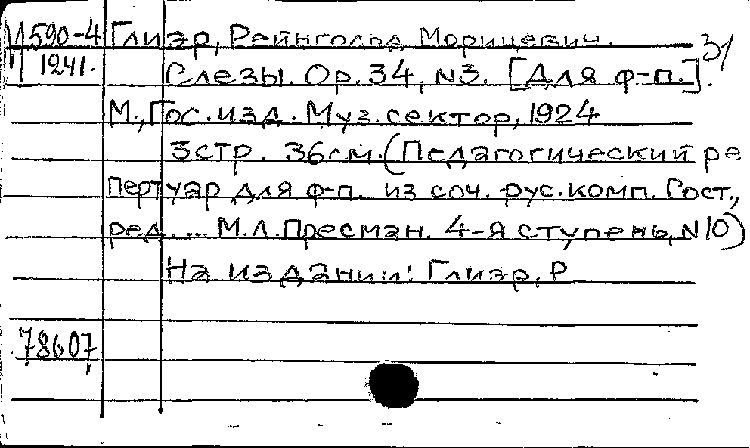 И 590-4 Глиэр, Рейнгольд Морицевич. 31
1241. Слезы. Op. 34, N3. [Для ф-п.].
М., Гос. изд. Муз. сектор, 1924
3 стр. 36 см. (Педагогический ре
пертуар для ф-п. из соч. рус. комп. Сост.,
ред. ... М.Л. Пресман. 4-я ступень, N 10)
На издании: Глиэр, Р
78607